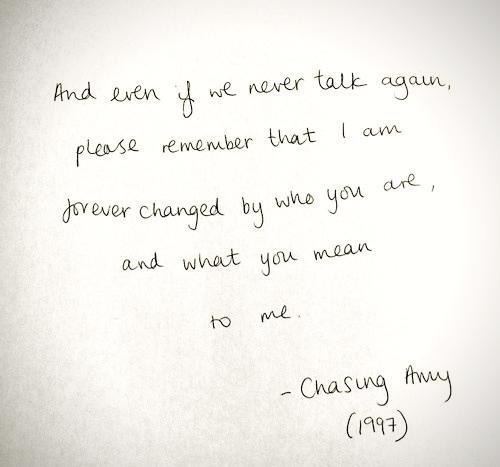 And even if we never talk again,
please remember that I am
forever changed by who you are,
and what you mean
to me.
- Chasing Amy
(1997)